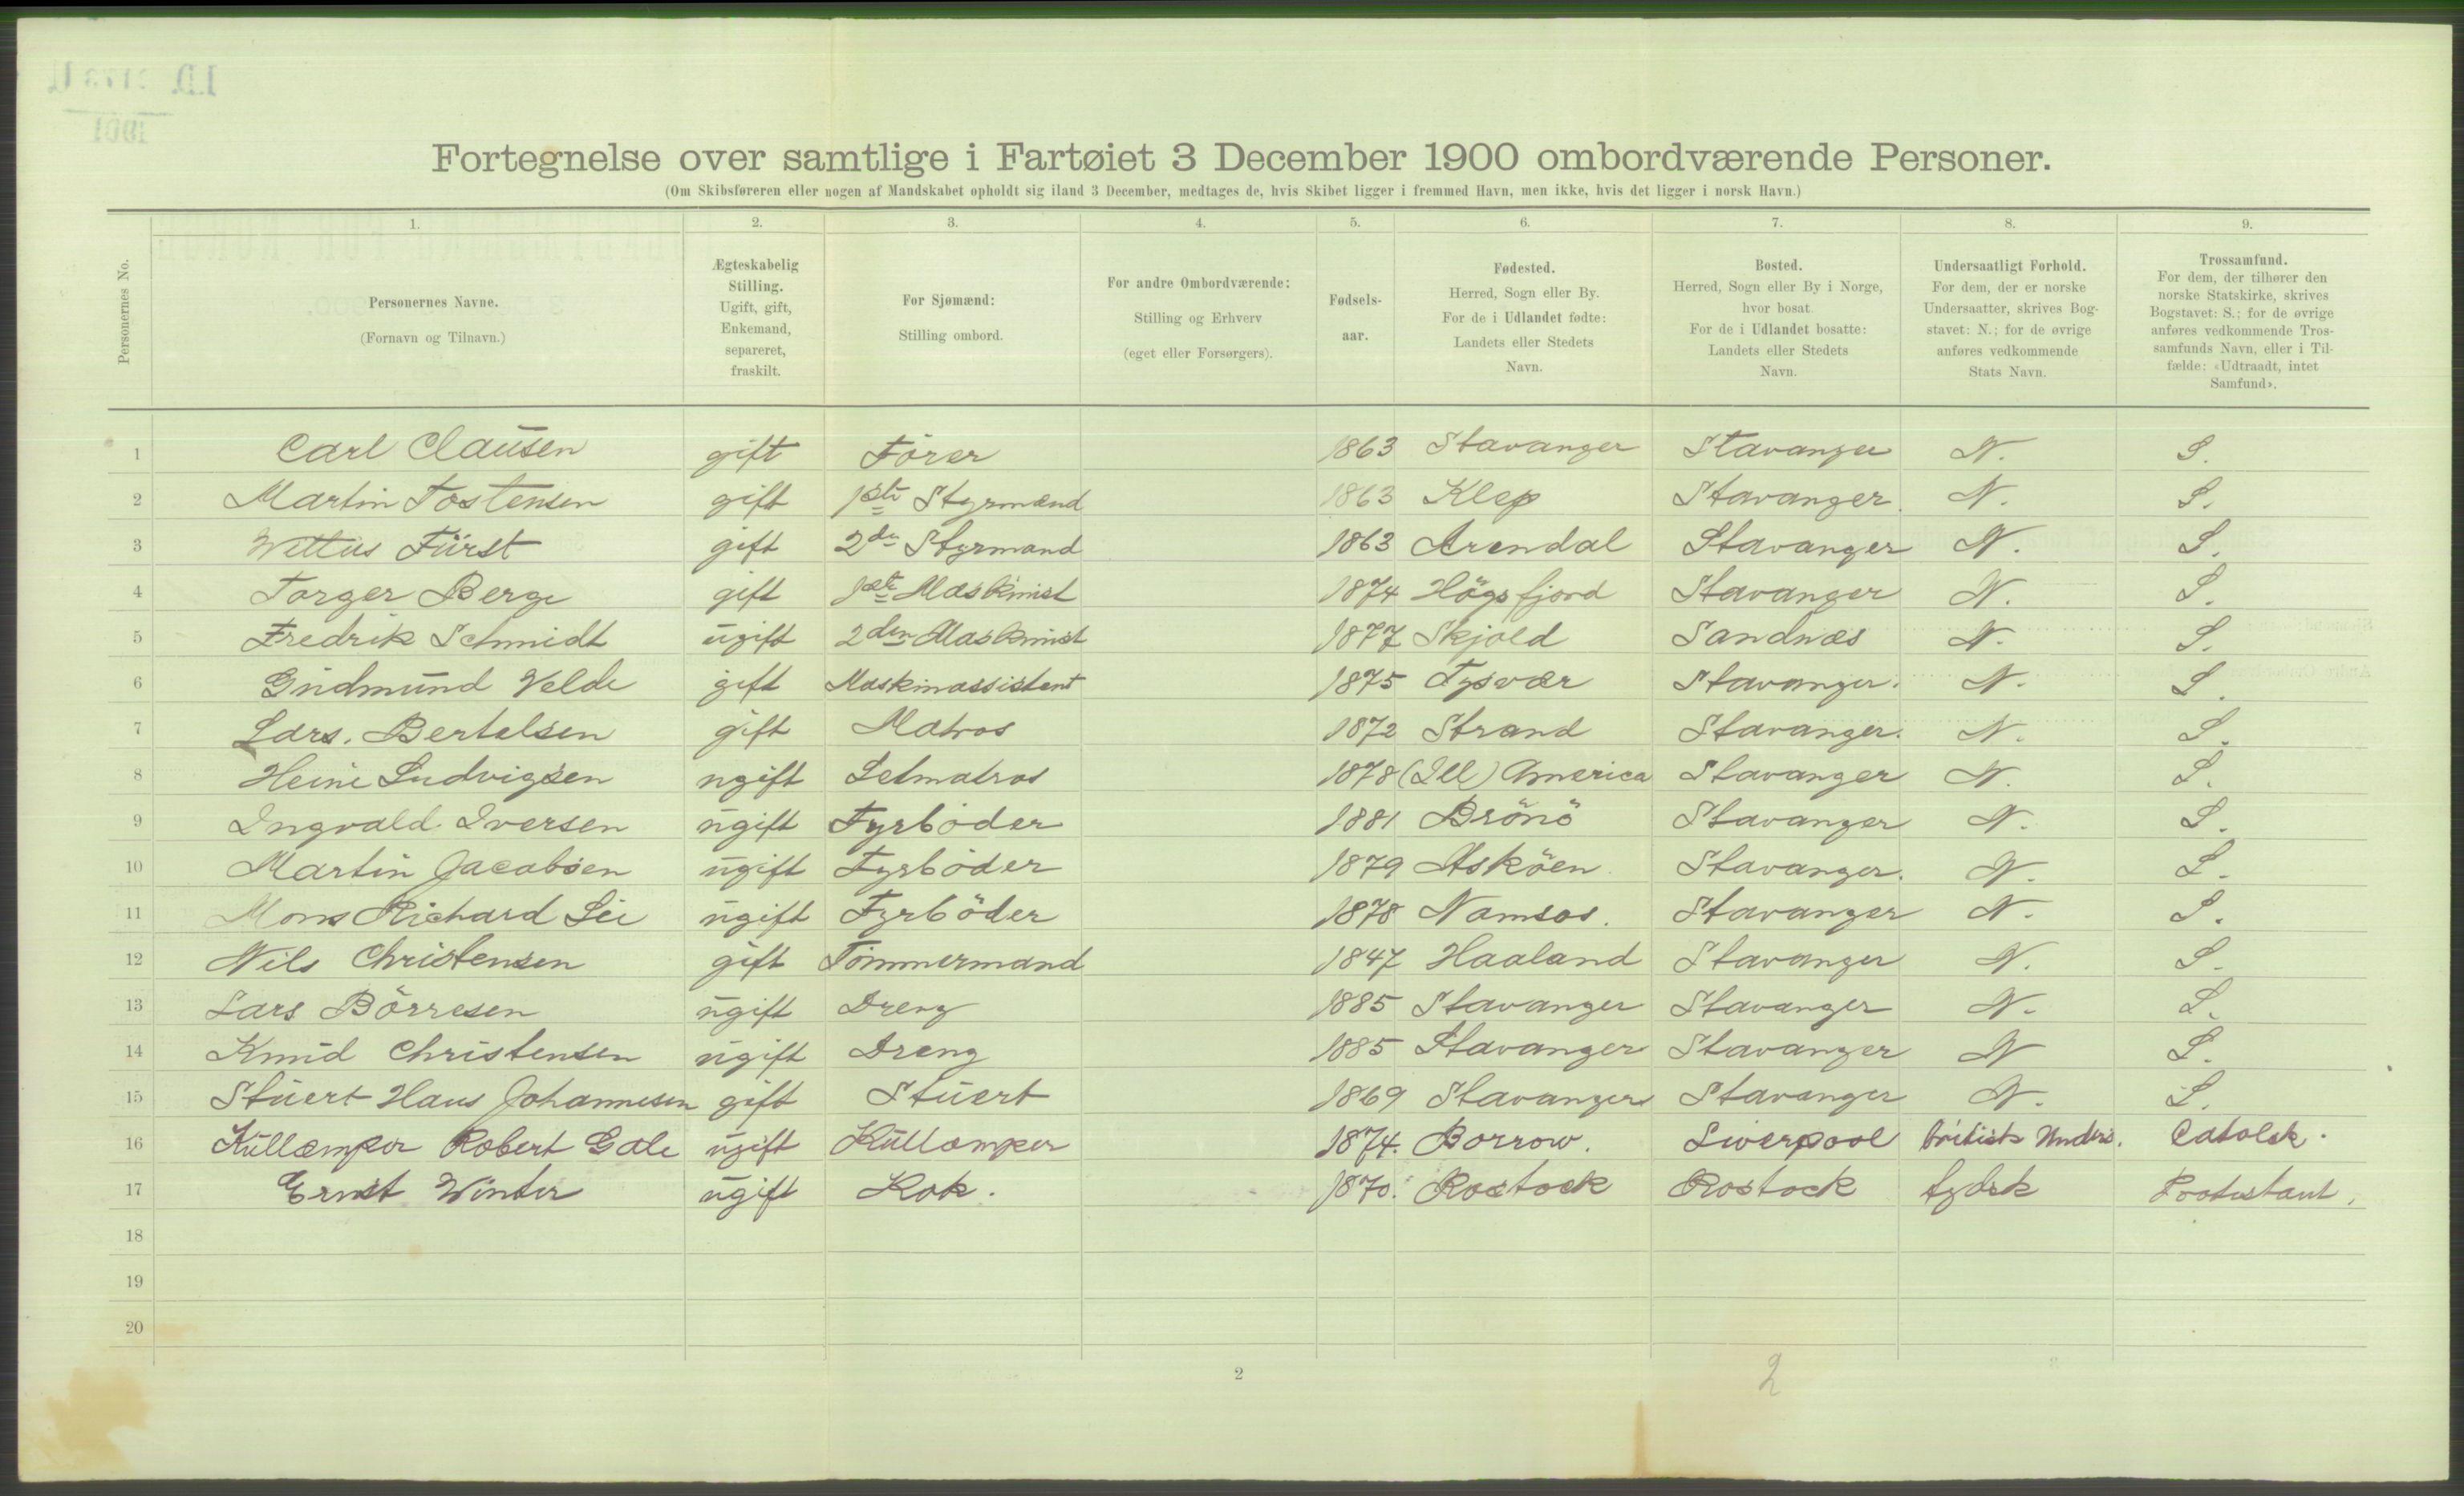 Fortegnelse over samtlige i Fartøiet 3 December 1900 ombordværende Personer.
(Om Skibsføreren eller nogen af Mandskabet opholdt sig iland 3 December, medtages de, hvis Skibet ligger i fremmed Havn, men ikke, hvis det ligger i norsk Havn.)
1. 2. 3. 4. 5. 6. 7. 8. 9.
Personernes No.
Personernes Navne.
(Fornavn og Tilnavn.)
Ægteskabelig
Stilling.
Ugift, gift,
Enkemand,
separeret,
fraskilt.
For Sjømænd:
Stilling ombord.
For andre Ombordværende:
Stilling og Erhverv
(eget eller Forsørgers).
Fødsels-
aar.
Fødested.
Herred, Sogn eller By.
For de i Udlandet fødte:
Landets eller Stedets
Navn.
Bosted.
Herred, Sogn eller By i Norge,
hvor bosat.
For de i Udlandet bosatte:
Landets eller Stedets
Navn.
Undersaatligt Forhold.
For dem, der er norske
Undersaatter, skrives Bog-
stavet: N.; for de øvrige
anføres vedkommende
Stats Navn.
Trossamfund.
For dem, der tilhører den
norske Statskirke, skrives
Bogstavet: S.; for de øvrige
anføres vedkommende Tros-
samfunds Navn, eller i Til-
fælde: «Udtraadt, intet
Samfund».
1 Carl Clausen gift Förer 1863 Stavanger Stavanger N. S.
2 Martin Tostensen gift 1ste Styrmand 1863 Klep Stavanger. N. S.
3 Fürst gift 2den Styrmand 1863 Arendal Stavanger N. S.
4 Torger Berge gift 1ste Maskinist 1874 Högsfjord Stavanger N. S.
5 Fredrik Schmidt ugift 2den Maskinist 1877 Skjold Sandnæs N. S.
6 Gudmund Velde gift Maskinassistent 1875 Tysvær Stavanger. N. S.
7 Lars. Bertelsen gift Matros 1872 Strand Stavanger. N. S.
8 Heine Ludvigsen ugift Letmatros 1878 (Ill) America Stavanger N. S.
9 Ingvald Iversen ugift Fyrböder 1881 Brönö Stavanger N. S.
10 Martin Jacobsen ugift Fyrböder 1879 Asköen Stavanger. N. S.
11 Mons Richard Lie ugift Fyrböder 1878 Namsos. Stavanger N. S.
12 Nils Christensen gift Tömmermand 1847 Haaland Stavanger N. S.
13 Lars Börresen ugift Dreng 1885 Stavanger Stavanger N. S.
14 Knud Christensen ugift Dreng 1885 Stavanger Stavanger N S.
15 Stuert Hans Johannesen gift Stuert 1869 Stavanger Stavanger N. S.
16 Kullemper Robert Gale ugift Kullemper 1874. Borrow. Liverpool britisk Unders. Catolsk.
17 Ernst Winter ugift Kok. 1870. Rostock Rostock tydsk Protestant.
18
19
20
2
2